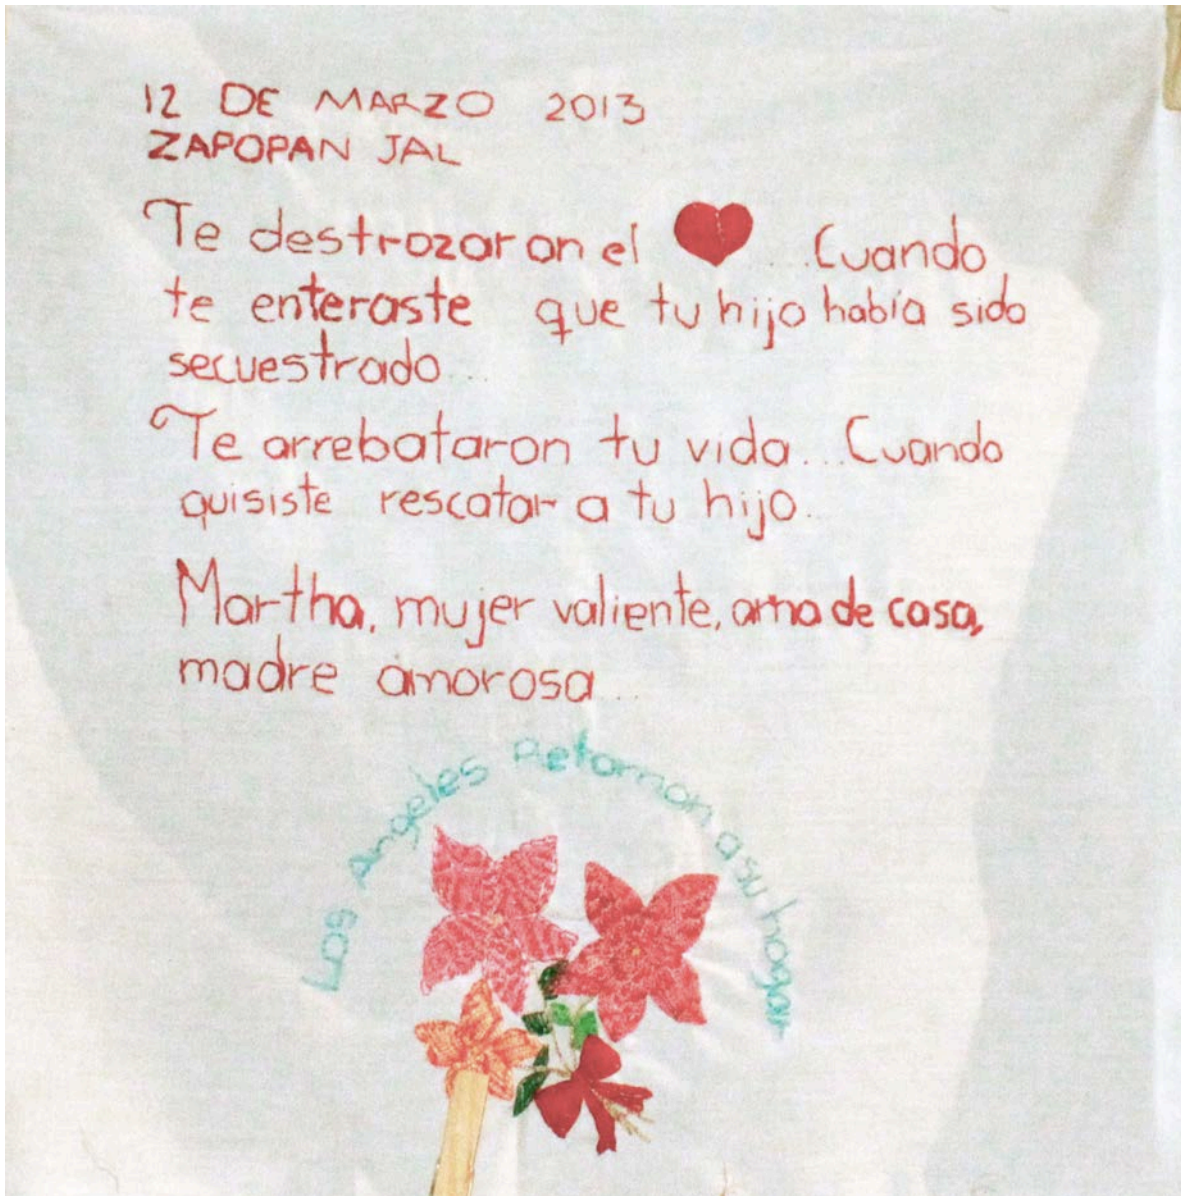 12 DE MARZO 2013
ZAPOPAN JAL
Te destrozaron el ❤ ... Cuando
te enteraste que tu hijo había sido
secuestrado...
Te arrebataron tu vida... Cuando
quisiste rescatar a tu hijo...
Martha, mujer valiente, ama de casa,
madre amorosa...
Los Angeles Retornan a su hogar